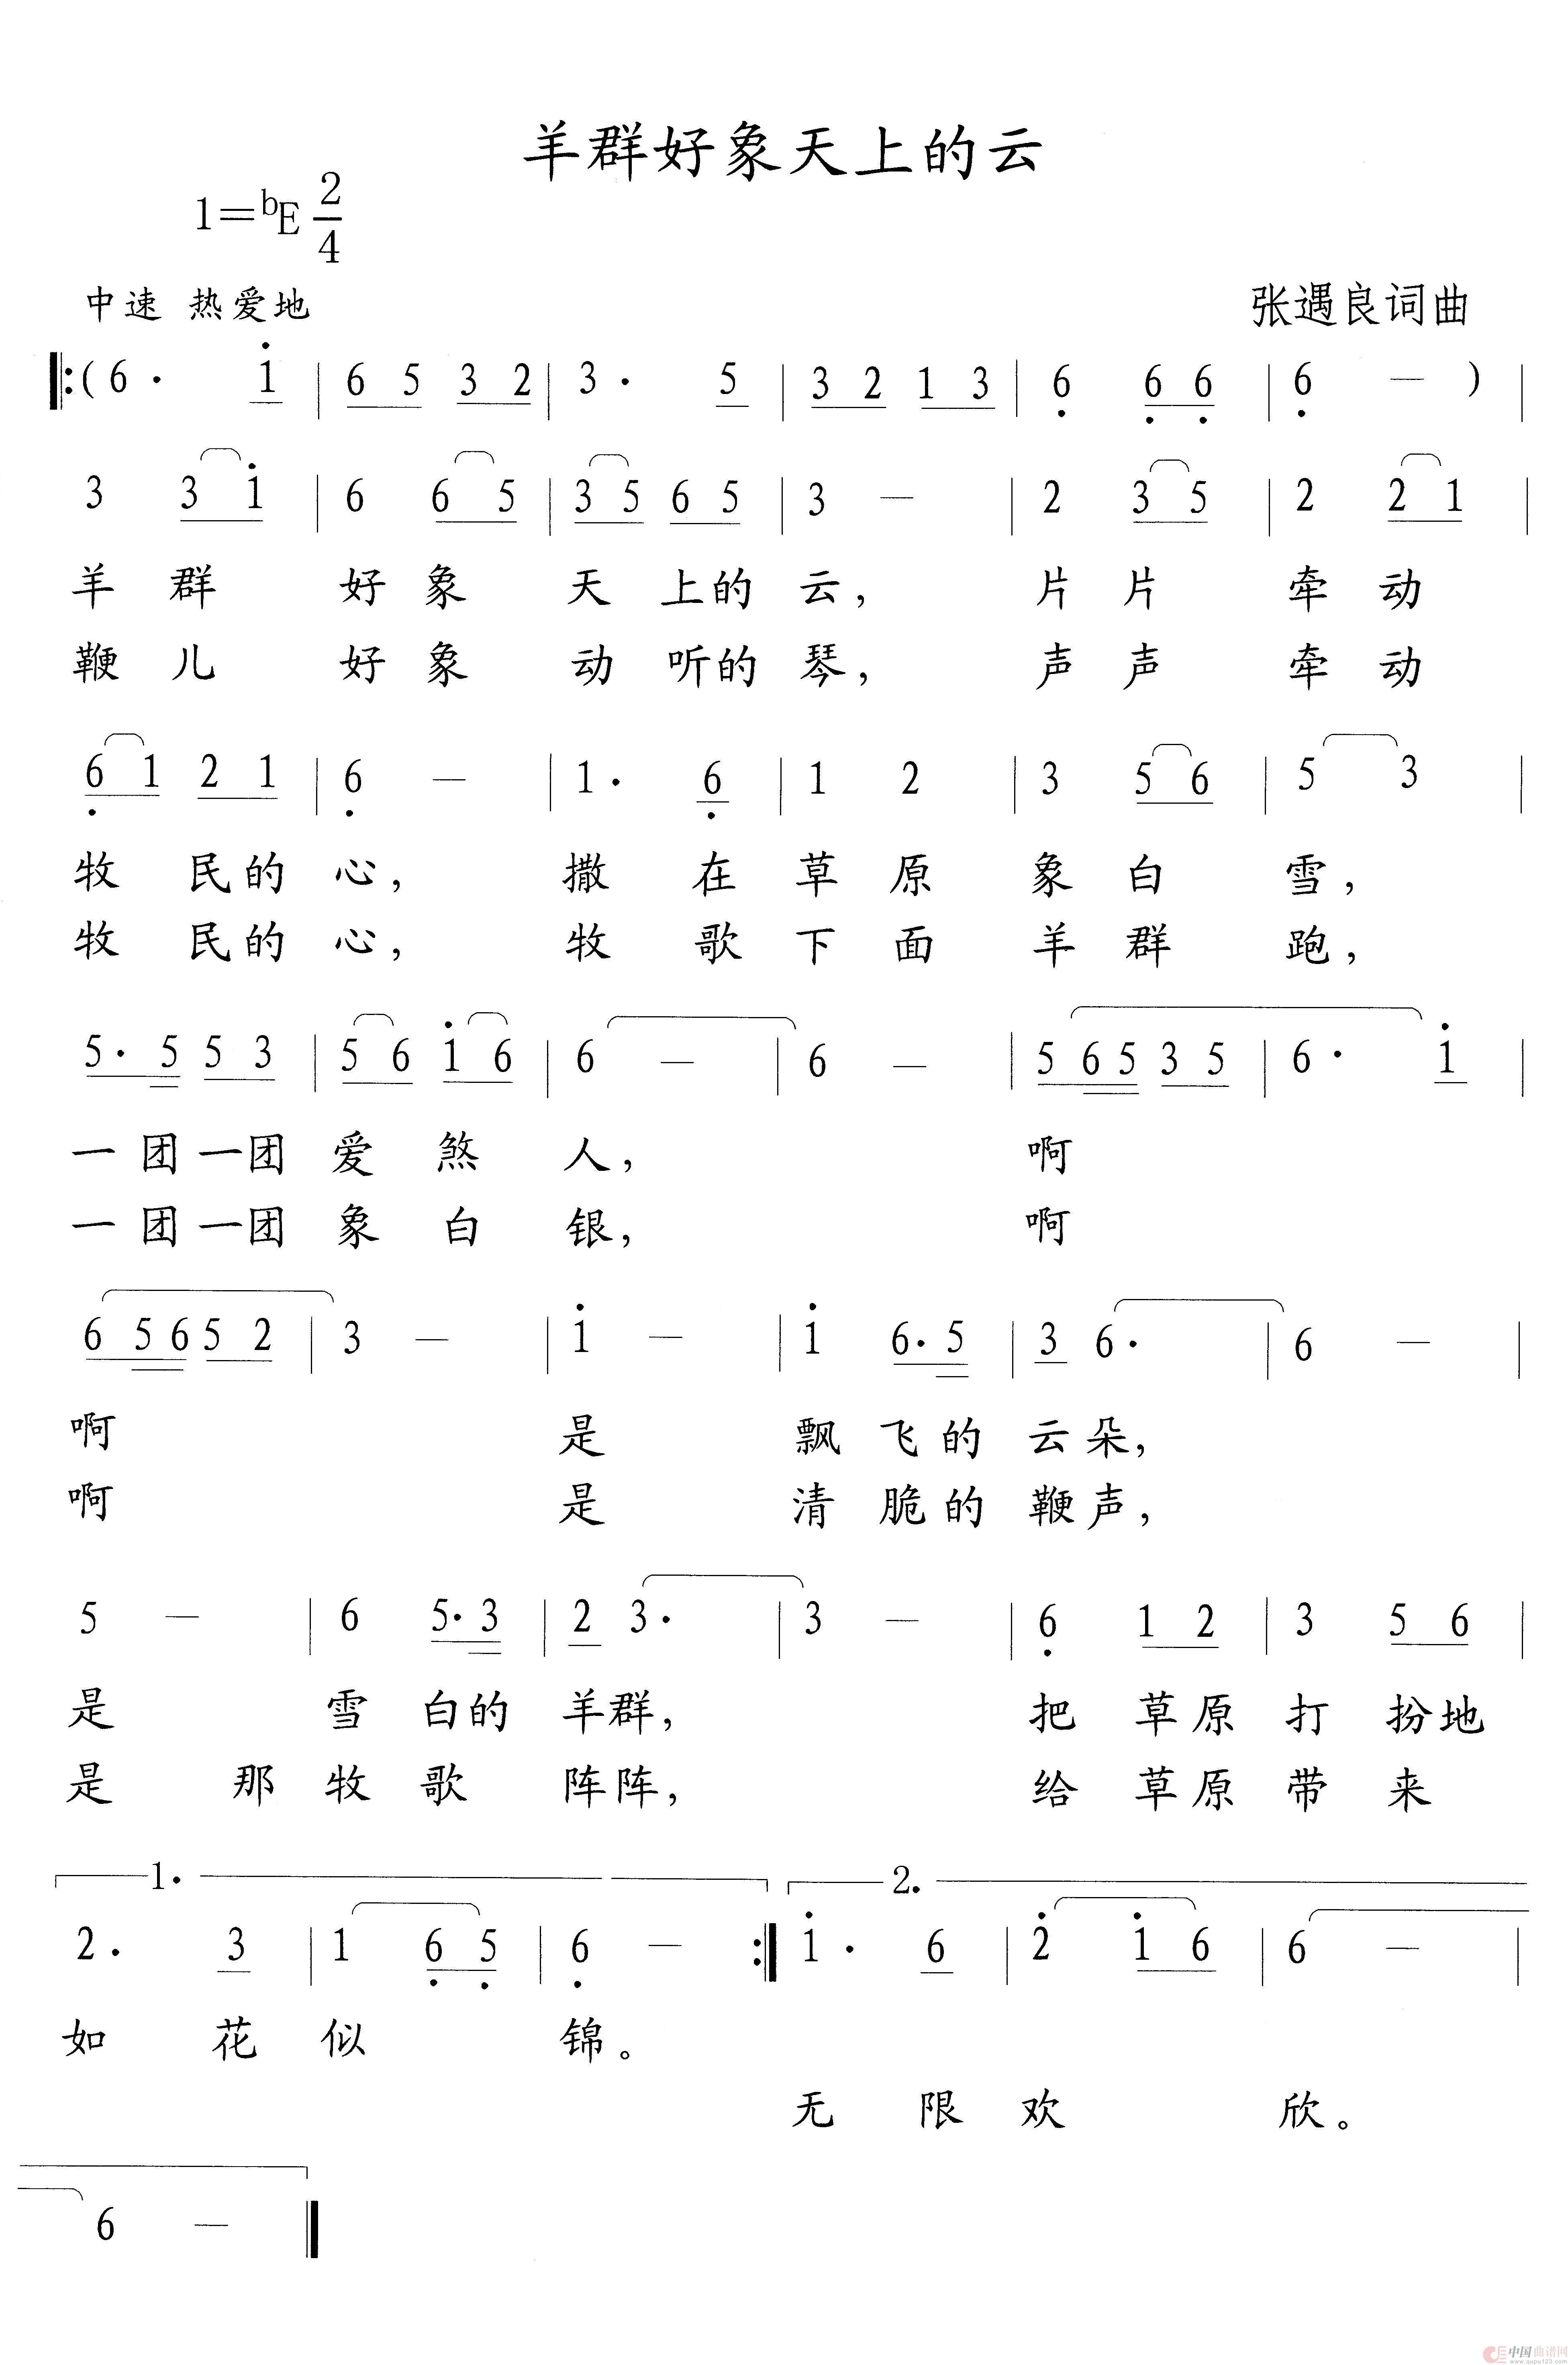 羊群好象天上的云
1=bE 2/4
中速 热爱地
张遇良词曲
‖:(6· i̇ | 6 5 3 2 | 3· 5 | 3 2 1 3 | 6̣ 6̣ 6̣ | 6̣ — ) |
3 3 i̇ | 6 6 5 | 3 5 6 5 | 3 — | 2 3 5 | 2 2 1 |
羊 群 好 象 天 上的 云， 片 片 牵 动
鞭 儿 好 象 动 听的 琴， 声 声 牵 动
6̣ 1 2 1 | 6̣ — | 1· 6̣ | 1 2 | 3 5 6 | 5 3 |
牧 民的 心， 撒 在 草 原 象 白 雪，
牧 民的 心， 牧 歌 下 面 羊 群 跑，
5· 5 5 3 | 5 6 i̇ 6 | 6 — | 6 — | 5 6 5 3 5 | 6· i̇ |
一 团 一团 爱 煞 人， 啊
一 团 一团 象 白 银， 啊
6 5 6 5 2 | 3 — | i̇ — | i̇ 6· 5 | 3 6· | 6 — |
啊 是 飘 飞 的 云朵，
啊 是 清 脆 的 鞭声，
5 — | 6 5· 3 | 2 3· | 3 — | 6̣ 1 2 | 3 5 6 |
是 雪 白的 羊群， 把 草原 打 扮地
是 那 牧 歌 阵阵， 给 草原 带 来
1. 2.
2· 3 | 1 6̣ 5̣ | 6̣ — :‖ i̇· 6 | 2̇ i̇ 6 | 6 — |
如 花 似 锦。
无 限 欢 欣。
6 — ‖
中国曲谱网
www.qupu123.com